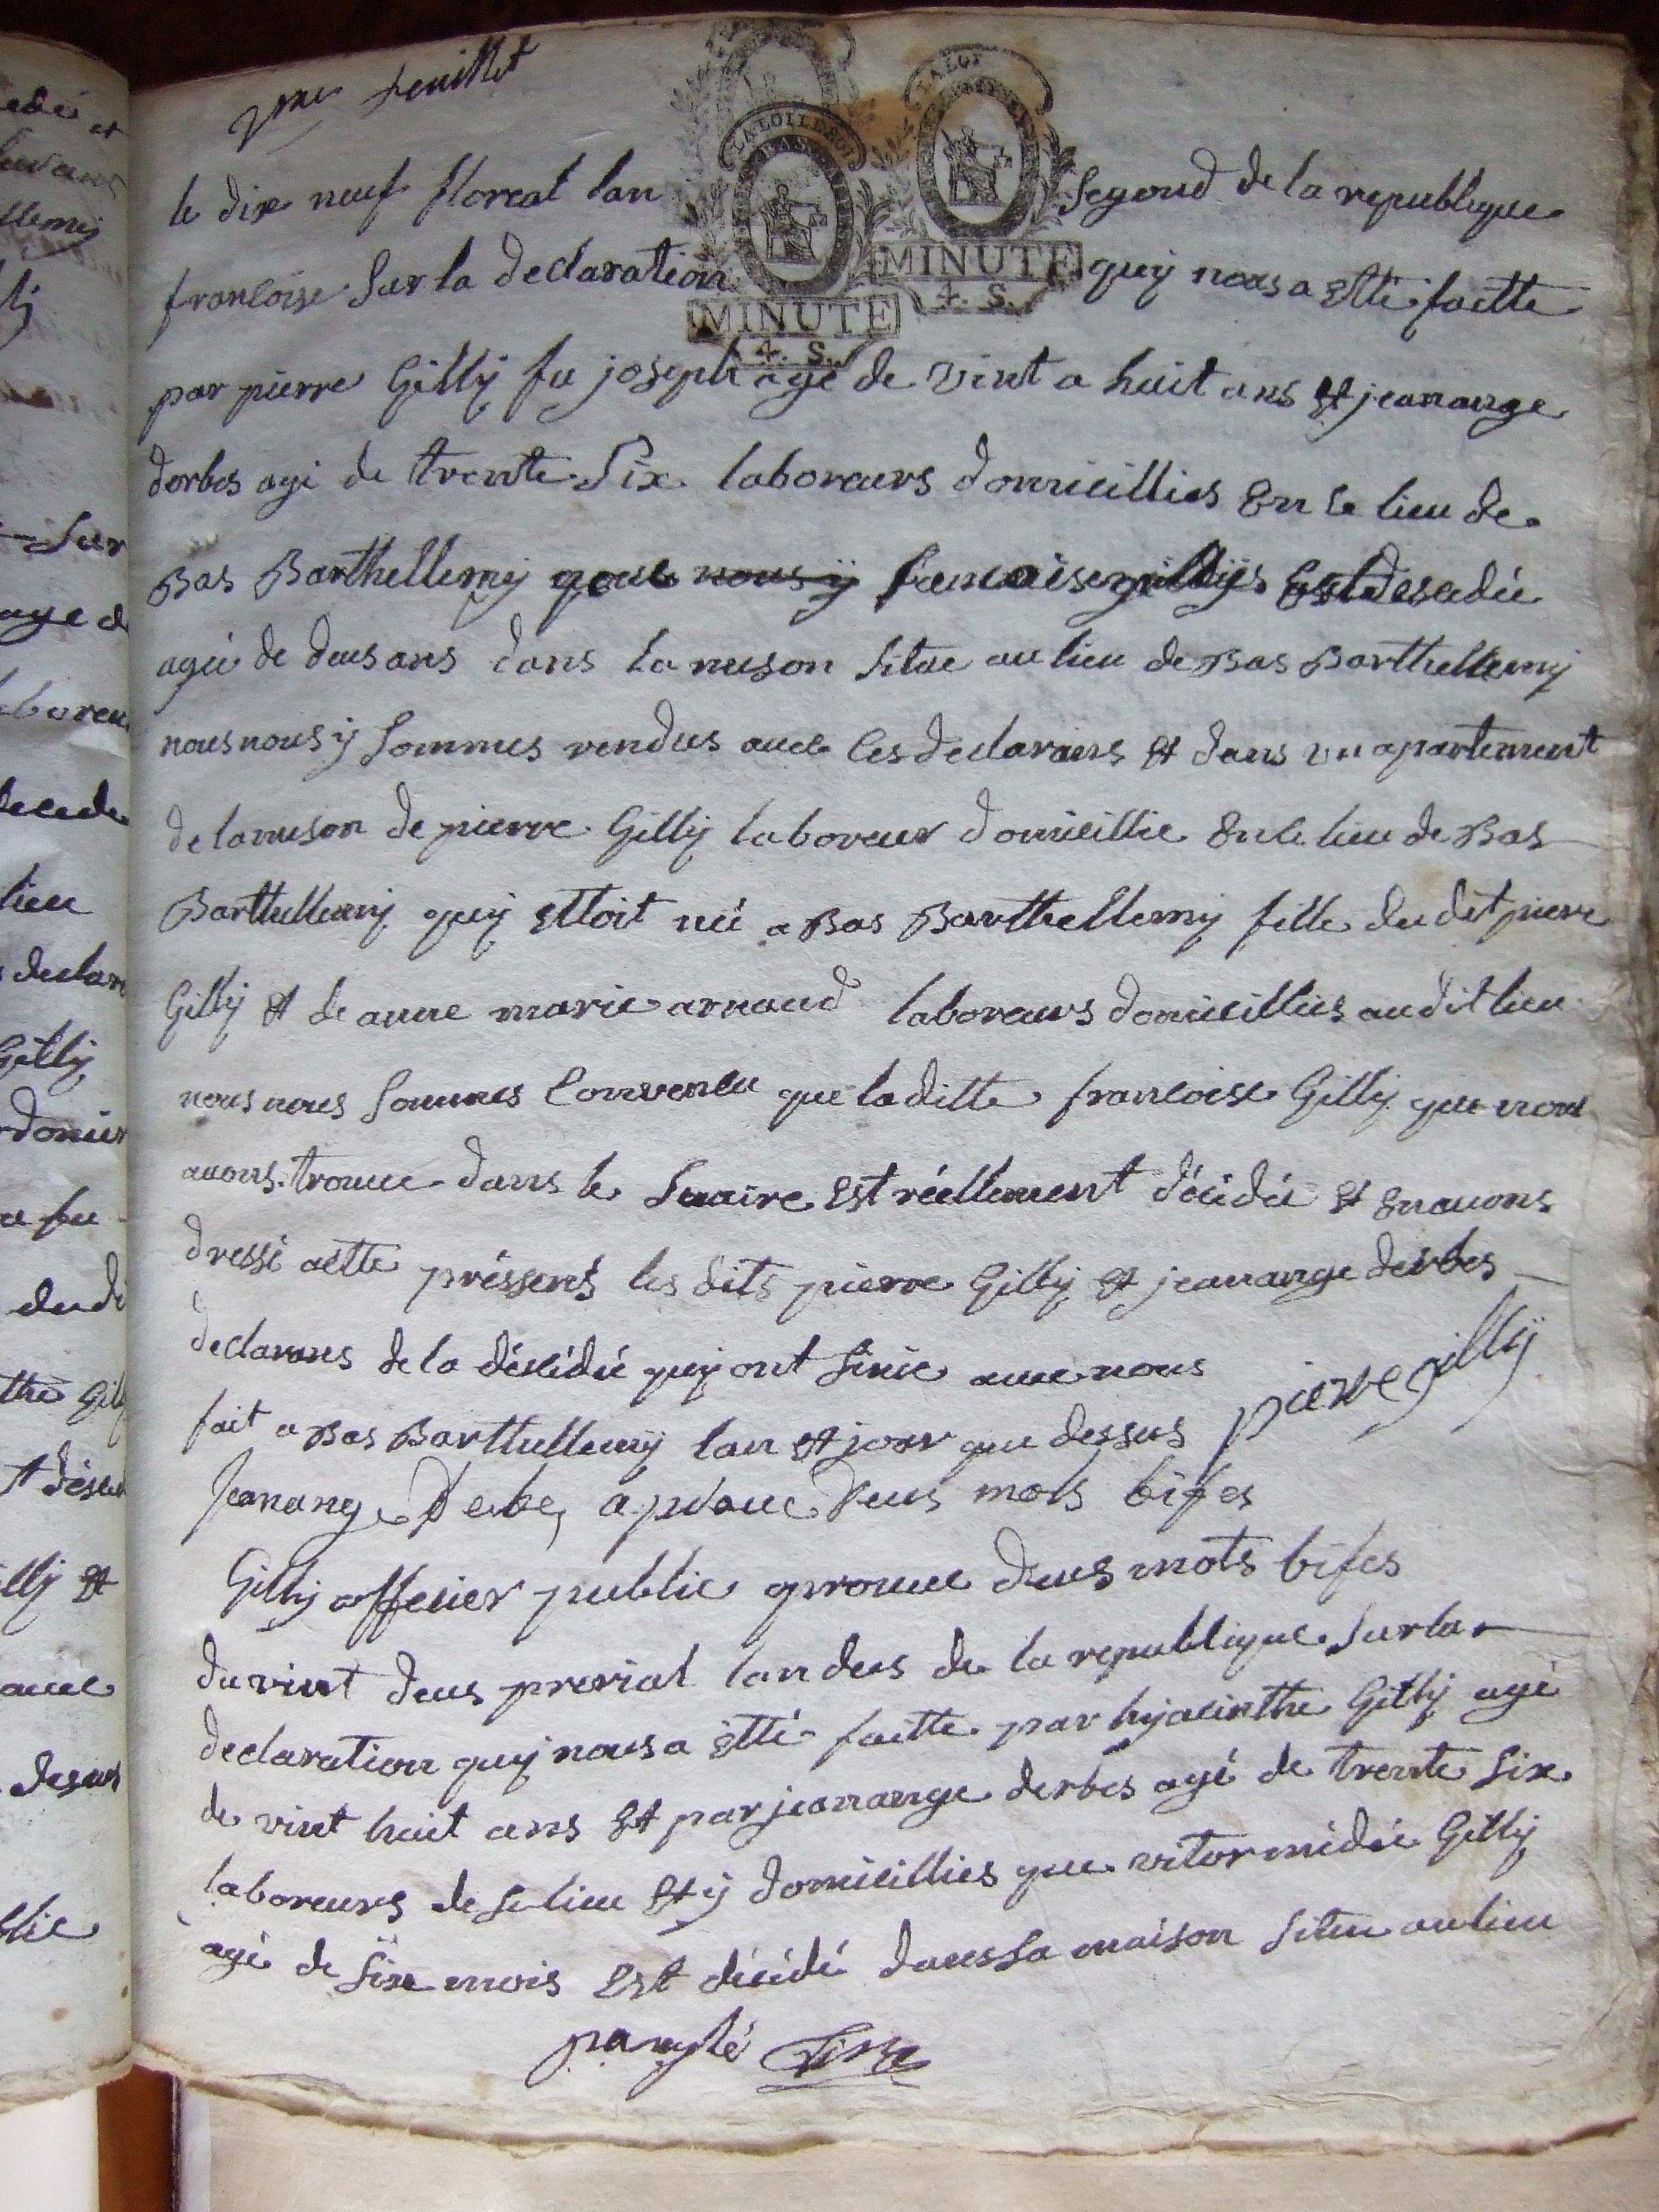 2me feuillet
LA LOI LE ROI
LA LOI
le dix neuf floreal lan segond de la republique
francoise sur la declaration quÿ nous a esté faitte
MINUTE
4. S.
MINUTE
4. S.
par pierre Gillÿ fu joseph agé de vint a huit ans et jeanange
derbes agé de trente six laboreurs domicilliés en se lieu de
Bas Barthellemÿ que nous ÿ francoise gillÿ est desedée
agée de deus ans dans la meson situe au lieu de Bas Barthellemÿ
nous nous ÿ sommes rendus avec les declarans et dans un apartement
de la meson de pierre Gillÿ laboreur domicillie en le lieu de Bas
Barthellemÿ quÿ ettoit né a Bas Barthellemÿ fille du dit pierre
Gillÿ et de anne marie arnaud laboreurs domicilliés au dit lieu
nous nous sommes convencu que la ditte francoise Gillÿ que nous
avons trouvé dans le suaire est réellement décédée et en avons
dressé aette préssens les dits pierre Gillÿ et jeanange derbes
declarans de la décédée quÿ ont sinie avec nous
fait a Bas Barthellemÿ lan et jour que dessus pierre gillÿ
Jeanange Derbes aprouve deus mots bifes
Gillÿ officier public aprouve deus mots bifes
du vint deus prerial lan deus de la republique sur la
declaration quÿ nous a etté faitte par hÿacinthe Gillÿ agé
de vint huit ans et par jeanange derbes agé de trente six
laboreurs de se lieu et ÿ domicilliés que Gillÿ
agé de six mois est décédé dans sa maison situe au lieu